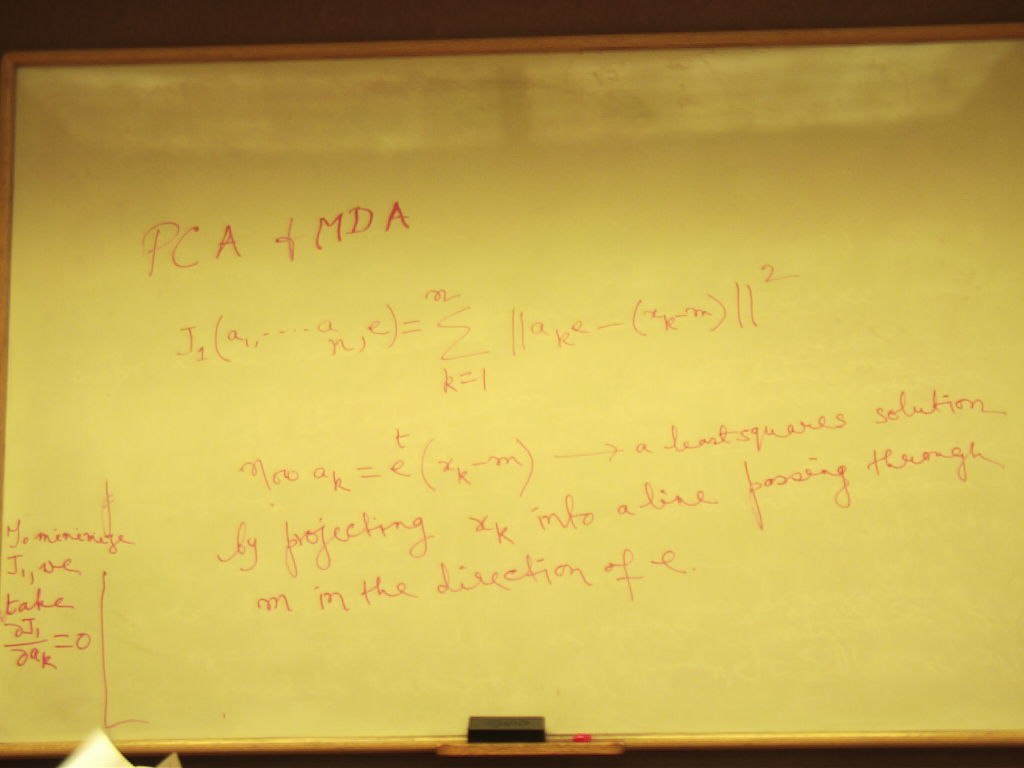 PCA & MDA
J₁(a₁,....aₙ,e)=∑ₖ₌₁ⁿ ||aₖe-(xₖ-m)||²
Now aₖ = eᵗ(xₖ-m) → a least squares solution
by projecting xₖ into a line passing through
m in the direction of e.
To minimize
J₁, we
take
∂J₁/∂aₖ=0